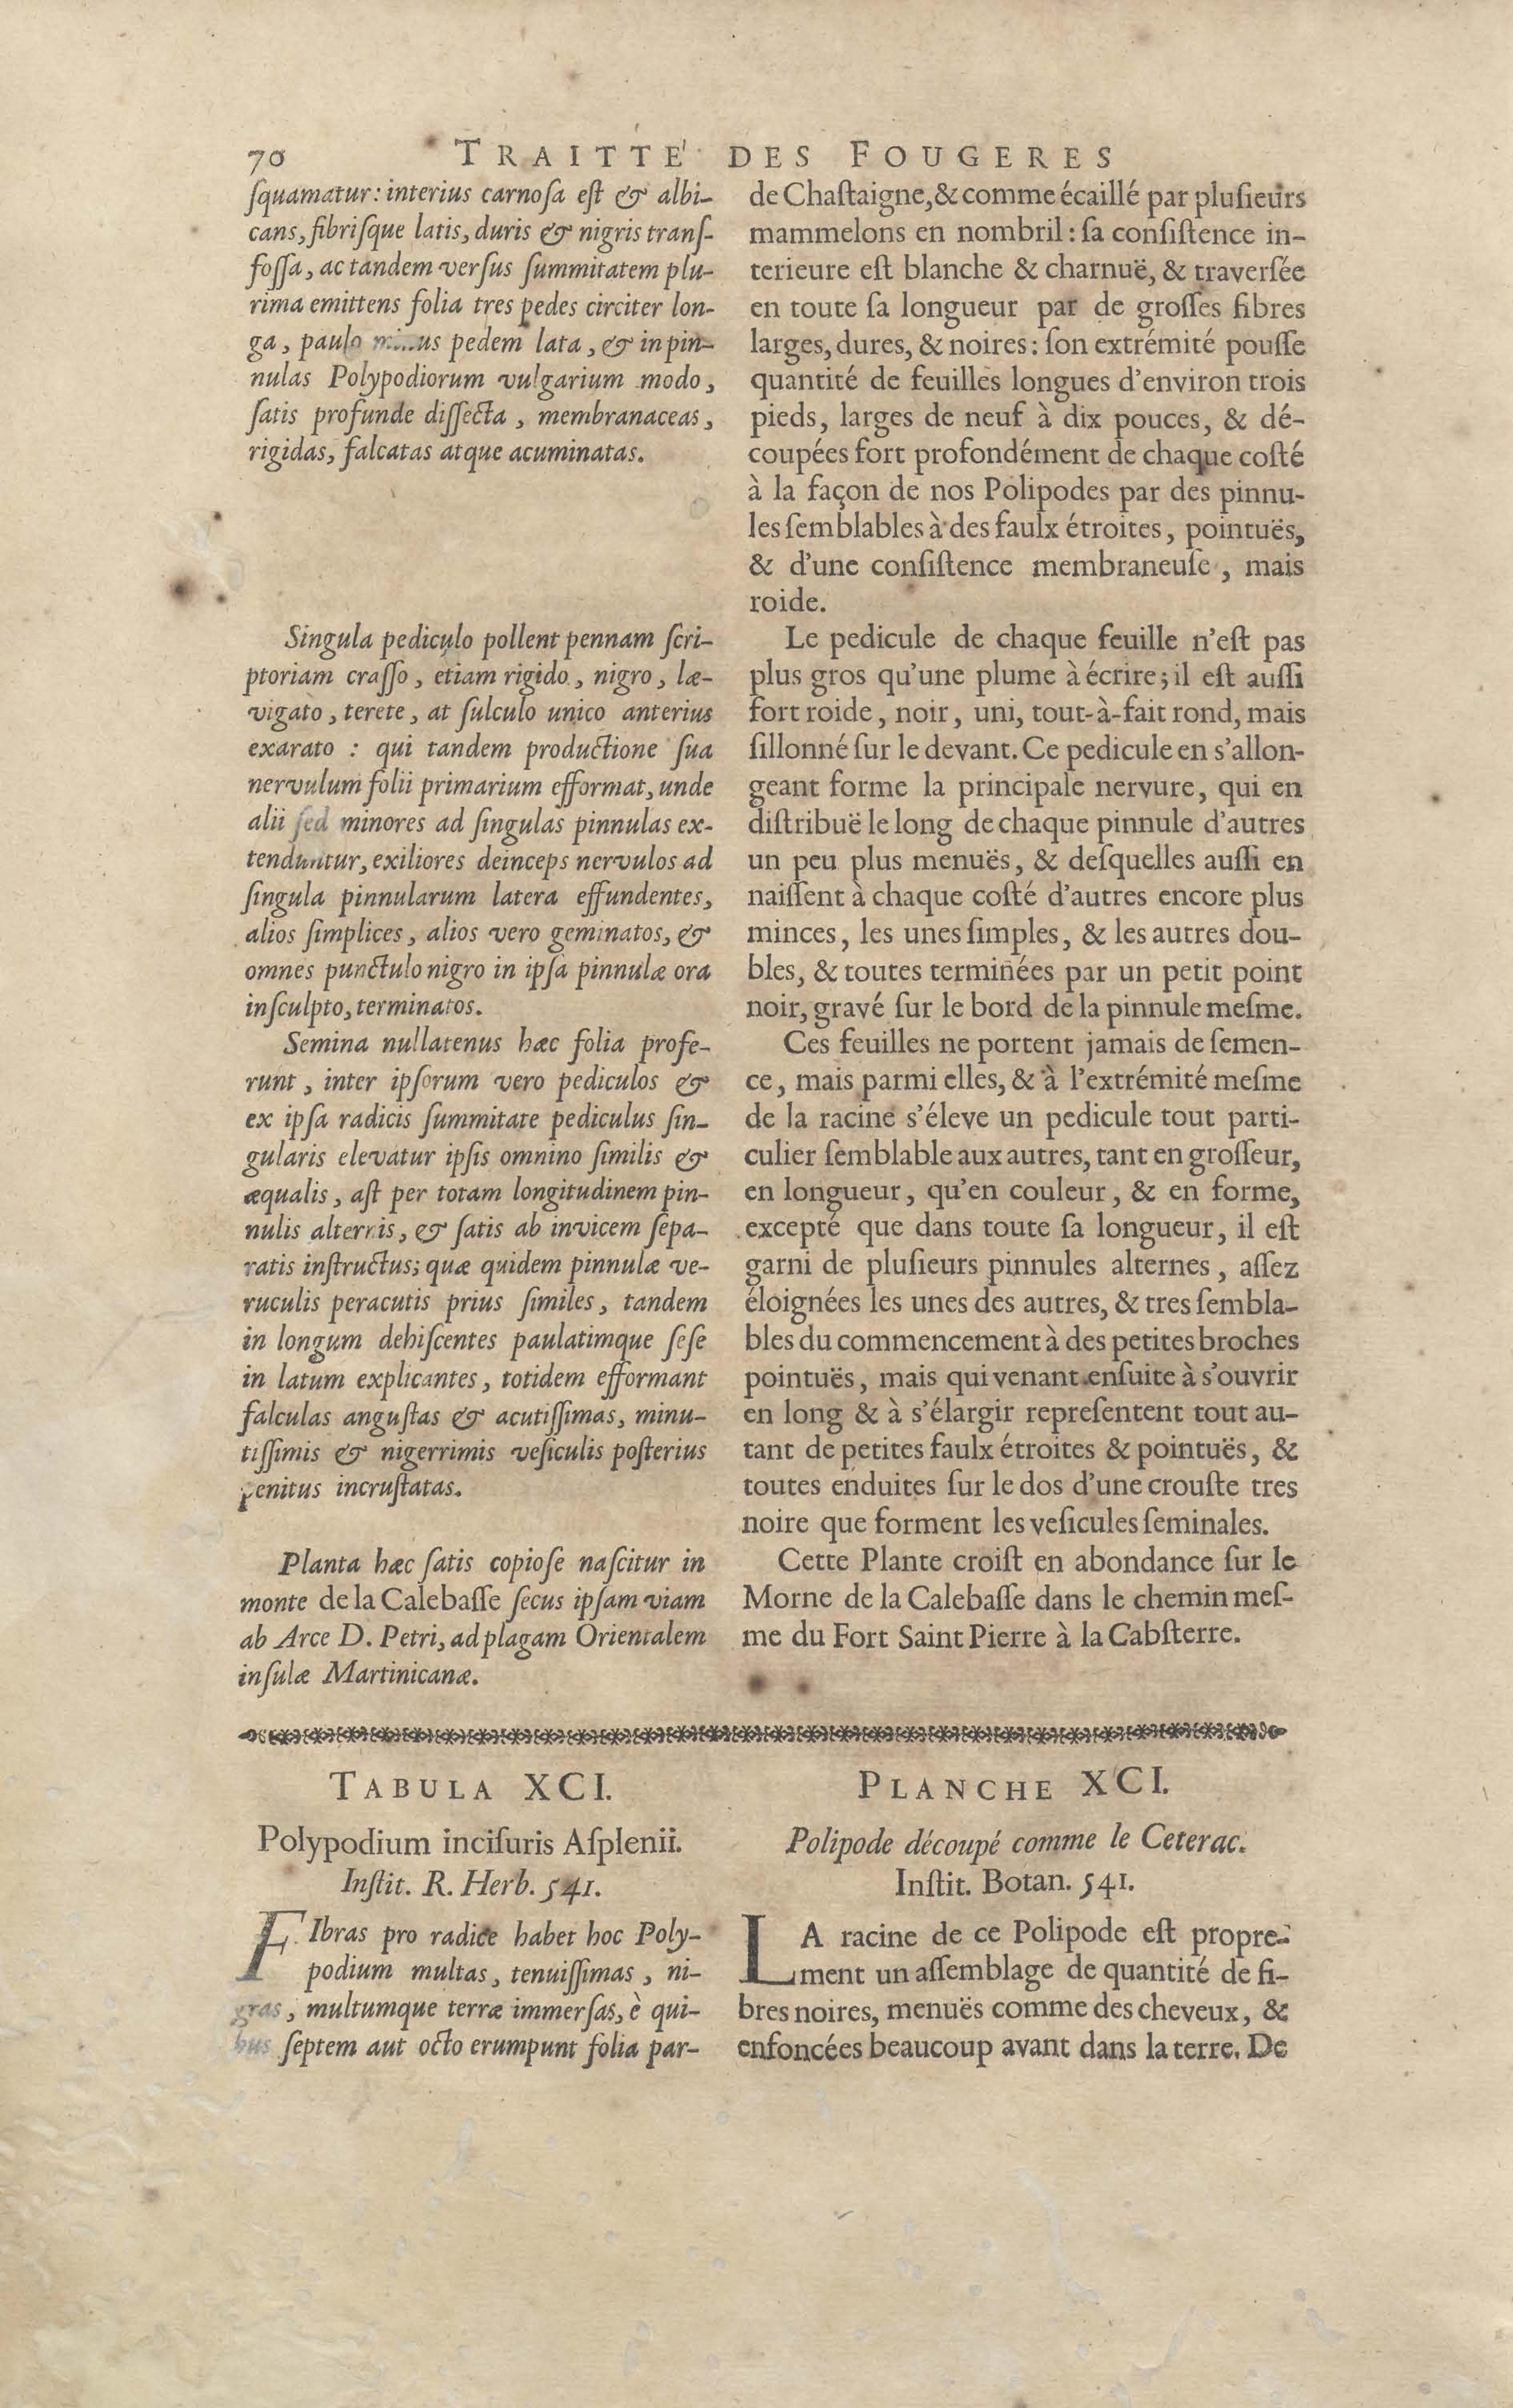 70 TRAITTE' DES FOUGERES
ſquamatur: interius carnoſa eſt & albi-
cans, fibriſque latis, duris & nigris tranſ-
foſſa, ac tandem verſus ſummitatem plu-
rima emittens folia tres pedes circiter lon-
ga, paulo pedem lata, & in pin-
nulas Polypodiorum vulgarium modo,
ſatis profunde diſſecta, membranaceas,
rigidas, falcatas atque acuminatas.
Singula pediculo pollent pennam ſcri-
ptoriam craſſo, etiam rigido, nigro, læ-
vigato, terete, at ſulculo unico anterius
exarato : qui tandem productione ſua
nervulum folii primarium efformat, unde
alii ſed minores ad ſingulas pinnulas ex-
tenduntur, exiliores deinceps nervulos ad
ſingula pinnularum latera effundentes,
alios ſimplices, alios vero geminatos, &
omnes punctulo nigro in ipſa pinnulæ ora
inſculpto, terminatos.
Semina nullatenus hæc folia profe-
runt, inter ipſorum vero pediculos &
ex ipſa radicis ſummitate pediculus ſin-
gularis elevatur ipſis omnino ſimilis &
æqualis, aſt per totam longitudinem pin-
nulis alternis, & ſatis ab invicem ſepa-
ratis inſtructus; quæ quidem pinnulæ ve-
ruculis peracutis prius ſimiles, tandem
in longum dehiſcentes paulatimque ſeſe
in latum explicantes, totidem efformant
falculas anguſtas & acutiſſimas, minu-
tiſſimis & nigerrimis veſiculis poſterius
penitus incruſtatas.
Planta hæc ſatis copioſe naſcitur in
monte de la Calebaſſe ſecus ipſam viam
ab Arce D. Petri, ad plagam Orientalem
inſulæ Martinicanæ.
de Chaſtaigne, & comme écaillé par pluſieurs
mammelons en nombril : ſa conſiſtence in-
terieure eſt blanche & charnuë, & traverſée
en toute ſa longueur par de groſſes fibres
larges, dures, & noires : ſon extrémité pouſſe
quantité de feuilles longues d'environ trois
pieds, larges de neuf à dix pouces, & dé-
coupées fort profondément de chaque coſté
à la façon de nos Polipodes par des pinnu-
les ſemblables à des faulx étroites, pointuës,
& d'une conſiſtence membraneuſe, mais
roide.
Le pedicule de chaque feuille n'eſt pas
plus gros qu'une plume à écrire; il eſt auſſi
fort roide, noir, uni, tout-à-fait rond, mais
ſillonné ſur le devant. Ce pedicule en s'allon-
geant forme la principale nervure, qui en
diſtribuë le long de chaque pinnule d'autres
un peu plus menuës, & deſquelles auſſi en
naiſſent à chaque coſté d'autres encore plus
minces, les unes ſimples, & les autres dou-
bles, & toutes terminées par un petit point
noir, gravé ſur le bord de la pinnule meſme.
Ces feuilles ne portent jamais de ſemen-
ce, mais parmi elles, & à l'extrémité meſme
de la racine s'éleve un pedicule tout parti-
culier ſemblable aux autres, tant en groſſeur,
en longueur, qu'en couleur, & en forme,
excepté que dans toute ſa longueur, il eſt
garni de pluſieurs pinnules alternes, aſſez
éloignées les unes des autres, & tres ſembla-
bles du commencement à des petites broches
pointuës, mais qui venant enſuite à s'ouvrir
en long & à s'élargir repreſentent tout au-
tant de petites faulx étroites & pointuës, &
toutes enduites ſur le dos d'une crouſte tres
noire que forment les veſicules ſeminales.
Cette Plante croiſt en abondance ſur le
Morne de la Calebaſſe dans le chemin meſ-
me du Fort Saint Pierre à la Cabſterre.
TABULA XCI.
Polypodium inciſuris Aſplenii.
Inſtit. R. Herb. 541.
FIbras pro radice habet hoc Poly-
podium multas, tenuiſſimas, ni-
gras, multumque terræ immerſas, è qui-
bus ſeptem aut octo erumpunt folia par-
PLANCHE XCI.
Polipode découpé comme le Ceterac.
Inſtit. Botan. 541.
LA racine de ce Polipode eſt propre-
ment un aſſemblage de quantité de fi-
bres noires, menuës comme des cheveux, &
enfoncées beaucoup avant dans la terre. De